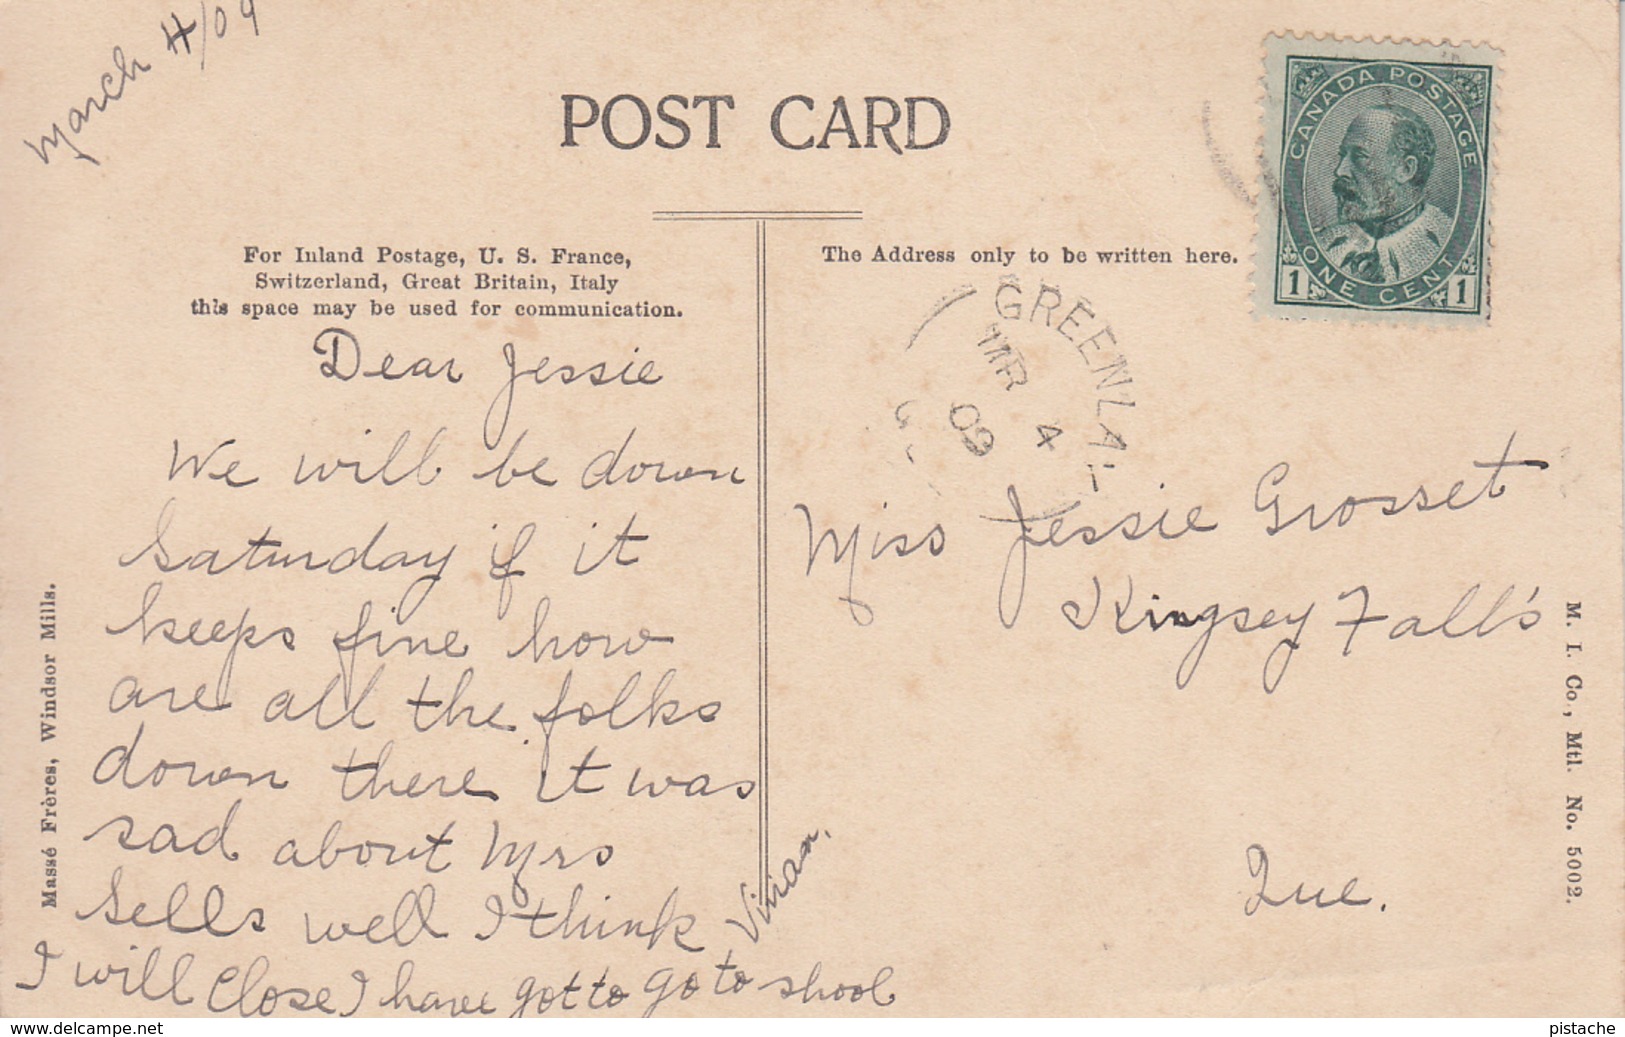 March 4/09
POST CARD
CANADA POSTAGE
1 ONE CENT 1
For Inland Postage, U. S. France,
Switzerland, Great Britain, Italy
this space may be used for communication.
The Address only to be written here.
GREENLA
MR 4
09
Dear Jessie
We will be down
Saturday if it
keeps fine how
are all the folks
down there it was
sad about Mrs
Sells well I think
I will close I have got to go to shool
Vivian.
Miss Jessie Grosset
Kingsey Fall's
Que.
Massé Frères, Windsor Mills.
M. I. Co., Mtl. No. 5002.
www.delcampe.net
pistache